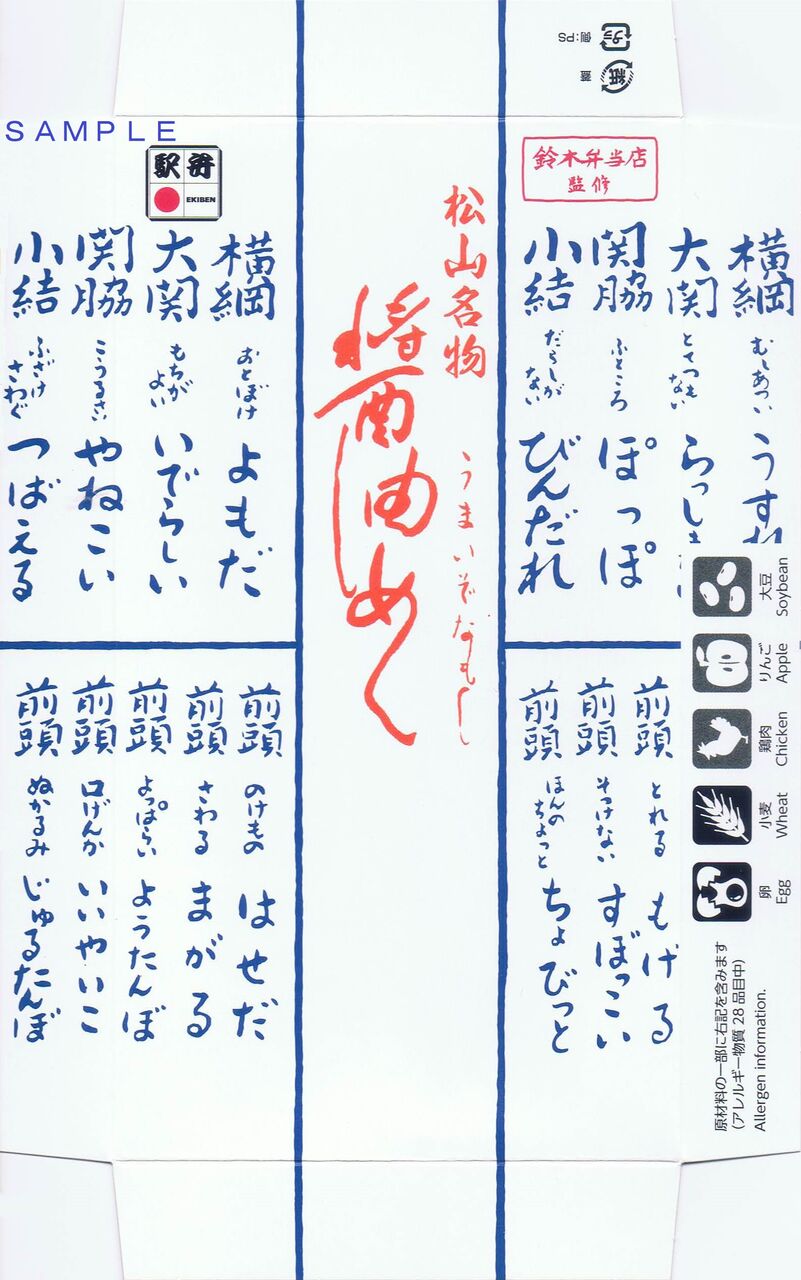 側:PS プラ
蓋 紙
SAMPLE
駅弁
EKIBEN
鈴木弁当店
監修
松山名物
醤油めし
うまいぞなもし
横綱 むしあつい
大関 とてつもない
関脇 ふところ ぽっぽ
小結 だらしがない びんだれ
横綱 おとぼけ よもだ
大関 もちがよい いでらしい
関脇 こうるさい やねこい
小結 ふざけさわぐ つばえる
前頭 とれる もげる
前頭 そっけない すぼっこい
前頭 ほんのちょっと ちょびっと
前頭 のけもの はせだ
前頭 さわる まがる
前頭 よっぱらい ようたんぼ
前頭 口げんか いいやいこ
前頭 ぬかるみ じゅるたんぼ
大豆
Soybean
りんご
Apple
鶏肉
Chicken
小麦
Wheat
卵
Egg
原材料の一部に右記を含みます
(アレルギー物質 28 品目中)
Allergen information.